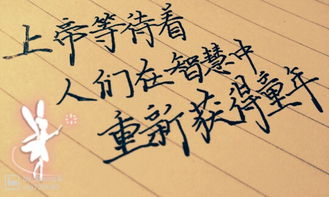 上帝等待着
人们在智慧中
重新获得童年